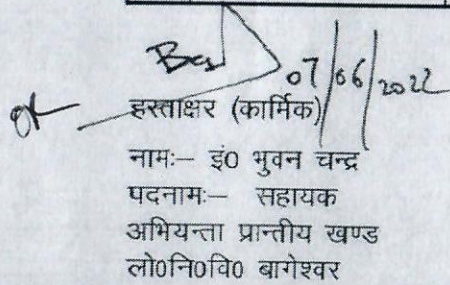 07/06/2022
हस्ताक्षर (कार्मिक)
नामः– इं0 भुवन चन्द्र
पदनामः– सहायक
अभियन्ता प्रान्तीय खण्ड
लो0नि0वि0 बागेश्वर